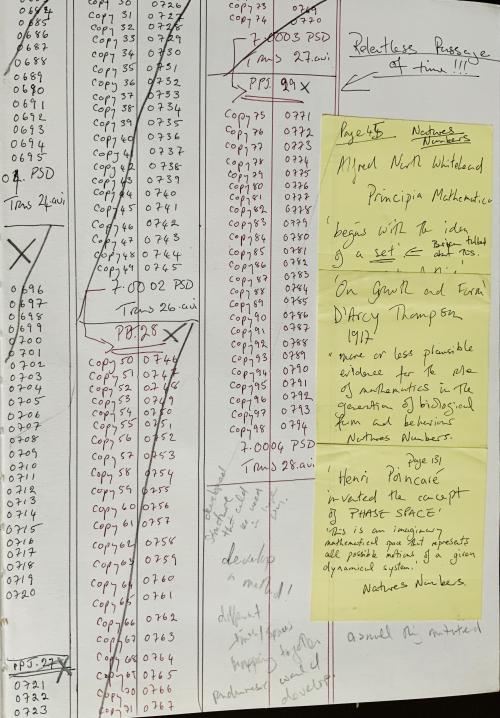 0684
0685
0686
0687
0688
0689
0690
0691
0692
0693
0694
0695
01. PSD
Trans 24.avi
X
0696
0697
0698
0699
0700
0701
0702
0703
0704
0705
0706
0707
0708
0709
0710
0711
0712
0713
0714
0715
0716
0717
0718
0719
0720
PPJ.27 X
0721
0722
0723
Copy 30 0726
Copy 31 0727
Copy 32 0728
Copy 33 0729
Copy 34 0730
Copy 35 0731
Copy 36 0732
Copy 37 0733
Copy 38 0734
Copy 39 0735
Copy 40 0736
Copy 41 0737
Copy 42 0738
Copy 43 0739
Copy 44 0740
Copy 45 0741
Copy 46 0742
Copy 47 0743
Copy 48 0744
Copy 49 0745
7.0002 PSD
Trans 26.avi
PPJ.28 X
Copy 50 0746
Copy 51 0747
Copy 52 0748
Copy 53 0749
Copy 54 0750
Copy 55 0751
Copy 56 0752
Copy 57 0753
Copy 58 0754
Copy 59 0755
Copy 60 0756
Copy 61 0757
Copy 62 0758
Copy 63 0759
Copy 64 0760
Copy 65 0761
Copy 66 0762
Copy 67 0763
Copy 68 0764
Copy 69 0765
Copy 70 0766
Copy 71 0767
Copy 73 0769
Copy 74 0770
7.0003 PSD
Trans 27.avi
PPJ. 29 X
Copy 75 0771
Copy 76 0772
Copy 77 0773
Copy 78 0774
Copy 79 0775
Copy 80 0776
Copy 81 0777
Copy 82 0778
Copy 83 0779
Copy 84 0780
Copy 85 0781
Copy 86 0782
Copy 87 0783
Copy 88 0784
Copy 89 0785
Copy 90 0786
Copy 91 0787
Copy 92 0788
Copy 93 0789
Copy 94 0790
Copy 95 0791
Copy 96 0792
Copy 97 0793
Copy 98 0794
7.0004 PSD
Trans 28.avi
develop
a method!
different
together
develop
Relentless Passage
of time!!!
Page 45 Natures Numbers
Alfred North Whitehead
Principia Mathematica
'begins with the idea
of a set'
'On Growth and Form'
D'Arcy Thompson
1917
"more or less plausible
evidence for the role
of mathematics in the
generation of biological
form and behaviour
Natures Numbers.
Page 131
'Henri Poincaré
invented the concept
of PHASE SPACE'
'This is an imaginary
mathematical space that represents
all possible motions of a given
dynamical system.'
Natures Numbers.